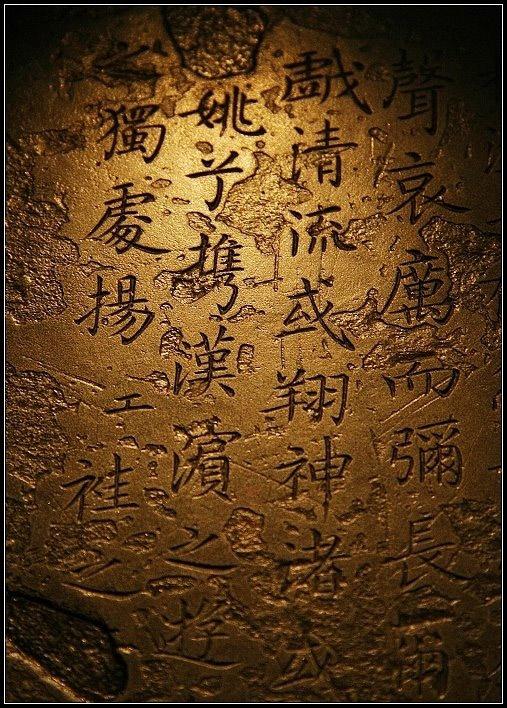 聲哀厲而彌長爾
戯清流或翔神渚或
姚兮攜漢濱之遊
之獨處揚袿之